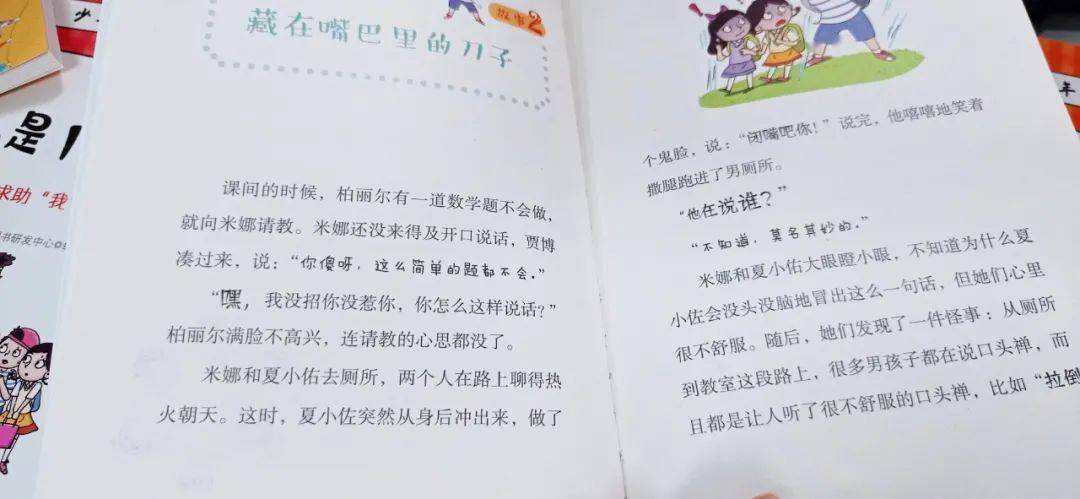 故事2
藏在嘴巴里的刀子
课间的时候，柏丽尔有一道数学题不会做，
就向米娜请教。米娜还没来得及开口说话，贾博
凑过来，说：“你傻呀，这么简单的题都不会。”
“嘿，我没招你没惹你，你怎么这样说话？”
柏丽尔满脸不高兴，连请教的心思都没了。
米娜和夏小佑去厕所，两个人在路上聊得热
火朝天。这时，夏小佐突然从身后冲出来，做了
个鬼脸，说：“闭嘴吧你！”说完，他嘻嘻地笑着
撒腿跑进了男厕所。
“他在说谁？”
“不知道，莫名其妙的。”
米娜和夏小佑大眼瞪小眼，不知道为什么夏
小佐会没头没脑地冒出这么一句话，但她们心里
很不舒服。随后，她们发现了一件怪事：从厕所
到教室这段路上，很多男孩子都在说口头禅，而
且都是让人听了很不舒服的口头禅，比如“拉倒
是
求助“我
书研发中心
少
年